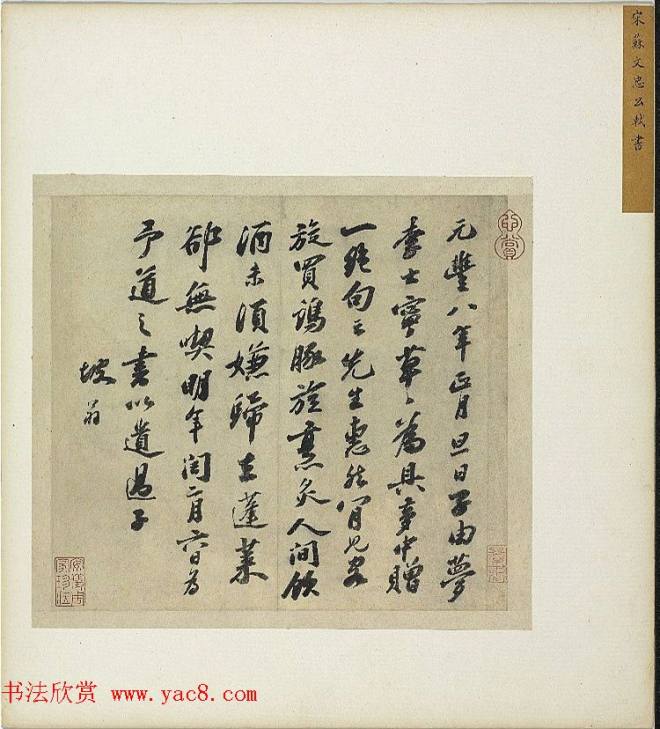 宋蘇文忠公軾書
元豐八年正月旦日子由夢
李士寧草〻為具夢中贈
一絕句云先生惠然肯見客
旋買鷄豚旋烹炙人間飲
酒未須嫌歸去蓬萊
卻無喫明年閏二月六日為
予道之書以遺過子
坡翁
安儀周家珍藏
书法欣赏 www.yac8.com